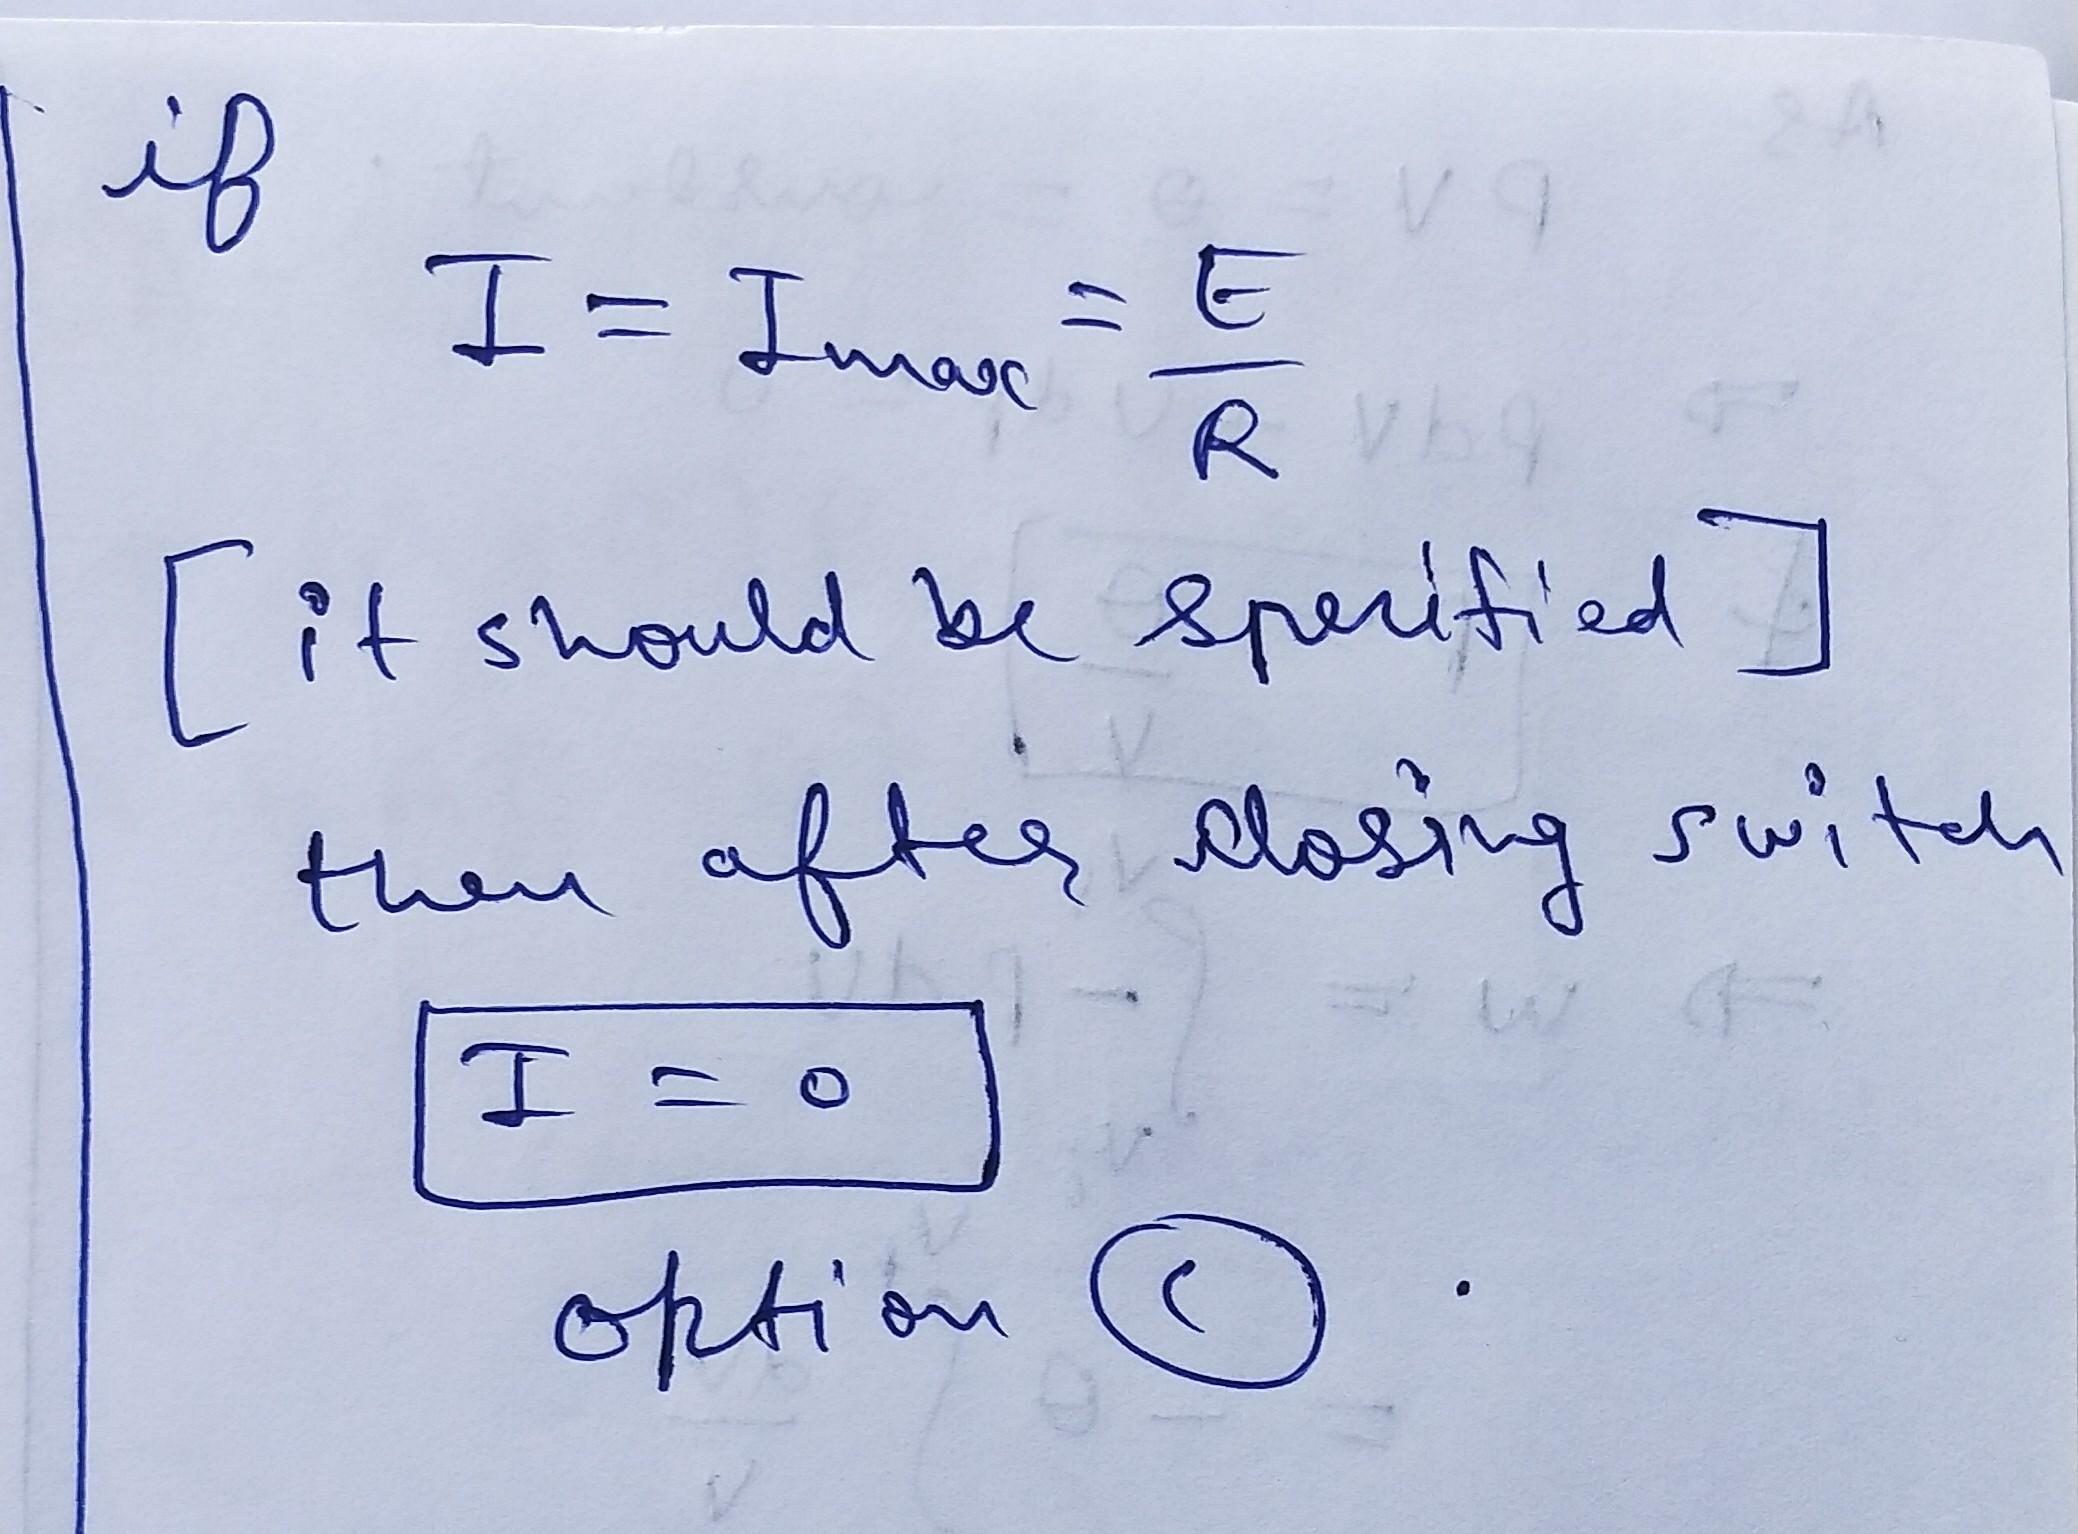 if
I = Imax = E
R
[it should be specified]
then after closing switch
I = 0
option (C).